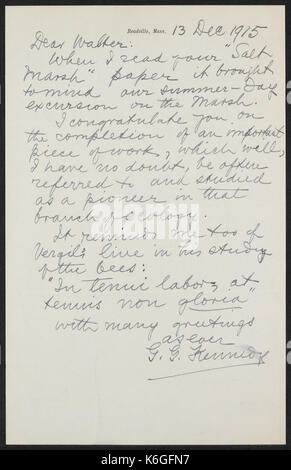 Readville, Mass.
13 Dec 1915
Dear Walter:
When I read your "Salt
Marsh" paper it brought
to mind our summer-Day
excursion on the Marsh.
I congratulate you on
the completion of an important
piece of work, which will,
I have no doubt, be often
referred to and studied
as a pioneer in that
branch of ecology.
It reminds me too of
Vergil's line in his study
of the bees:
"In tenui labor; at
tenuis non gloria"
with many greetings
as ever
G. G. Kennedy
alamy
alamy
Image ID: K6GFN7
www.alamy.com